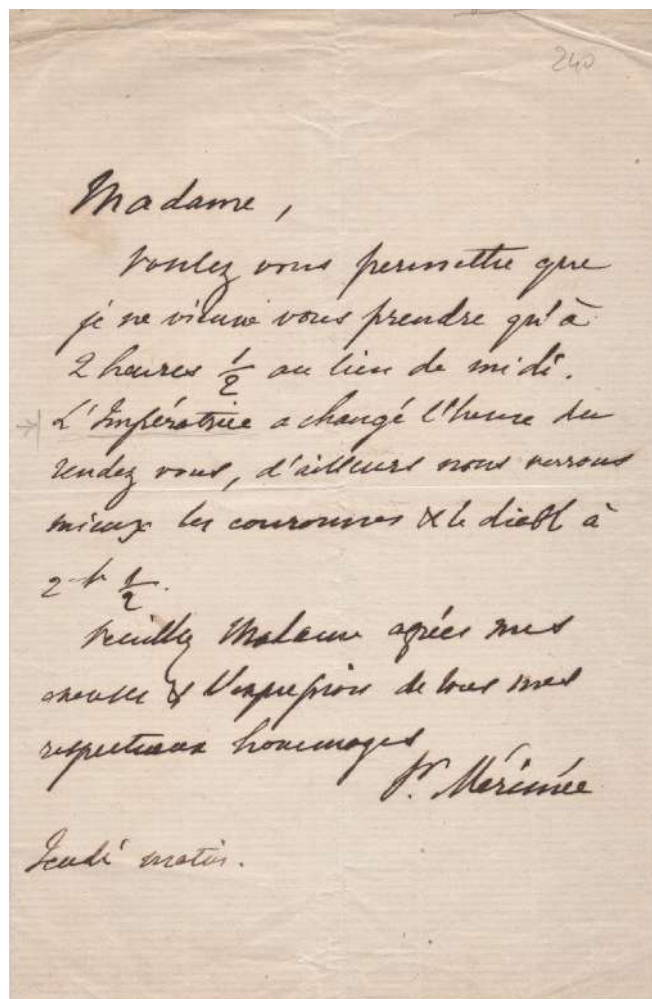 240
Madame,
Voulez vous permettre que
je ne vienne vous prendre qu'à
2 heures 1/2 au lieu de midi.
L'Impératrice a changé l'heure du
rendez vous, d'ailleurs nous verrons
mieux les couronnes & le diable à
2 h 1/2.
Veuillez Madame agréer mes
excuses & l'expression de tous mes
respectueux hommages
Pr. Mérimée
Jeudi matin.